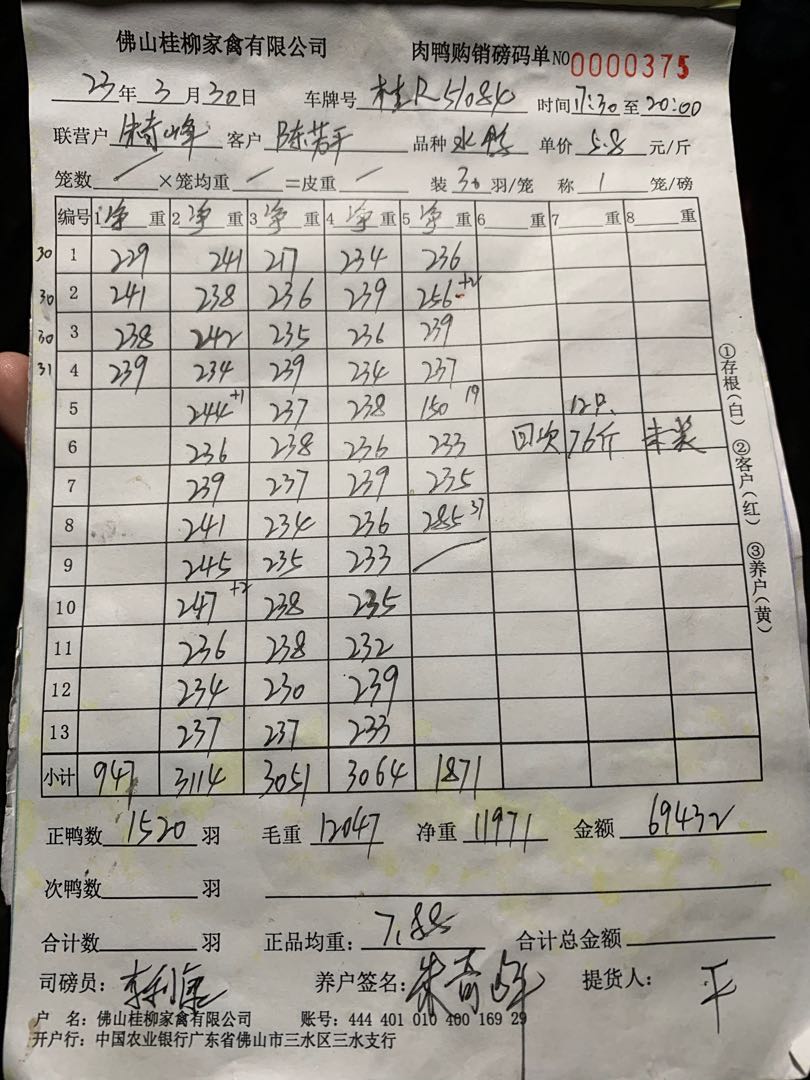 佛山桂柳家禽有限公司 肉鸭购销磅码单 NO 0000375
23年3月30日 车牌号 桂R51084 时间17:30至20:00
联营户 朱奇峰 客户 陈若平 品种 水鸭 单价 5.8 元/斤
笼数 / ×笼均重 / =皮重 / 装 30 羽/笼 称 1 笼/磅
编号 1净重 2净重 3净重 4净重 5净重 6 重 7 重 8 重
30 1 229 241 217 234 236
30 2 241 238 236 239 256 +2
30 3 238 242 235 236 239
31 4 239 234 239 234 237
5 244 +1 237 238 150 19 12只
6 236 238 236 233 回次 76斤 未装
7 239 237 239 235
8 241 234 236 285 37
9 245 235 233 /
10 247 +2 238 235
11 236 238 232
12 234 230 239
13 237 237 233
小计 947 3114 3051 3064 1871
正鸭数 1520 羽 毛重 12047 净重 11971 金额 69432
次鸭数 羽
合计数 羽 正品均重: 7.88 合计总金额
司磅员: 李利 养户签名: 朱奇峰 提货人: 平
户 名: 佛山桂柳家禽有限公司 账号: 444 401 010 400 169 29
开户行: 中国农业银行广东省佛山市三水区三水支行
①存根(白) ②客户(红) ③养户(黄)